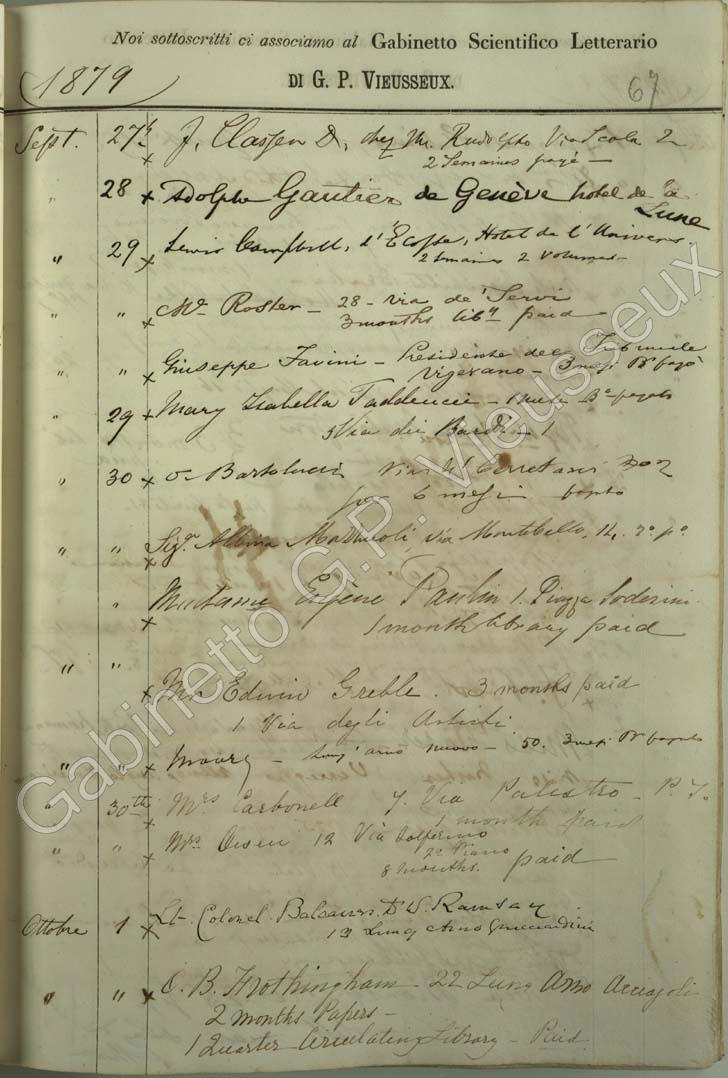 Noi sottoscritti ci associamo al Gabinetto Scientifico Letterario
DI G. P. VIEUSSEUX.
1879
67
Sept. 27 J. Classen D. chez Mr. Rudolpho Via Scala 2
2 Semaines payé —
" 28 x Adolphe Gautier de Genève hotel de la
Lune
" 29 x Lewis Campbell, d'Ecosse, Hotel de l'Univers.
2 Semaines 2 volumes —
" " x Mr Roster — 28 — via de' Servi
3 months liby paid
" " x Giuseppe Favini — Presidente del Tribunale
Vigevano — 3 mesi
29 x Mary Isabella Taddeucci —
5 Via dei Bardi — 1
" 30 x Bartolucci Via
per 6 mesi
" " x Sigra Albina Via Montebello, 14, 2o po
" x Madame Eugène Paulin 1. Piazza Soderini
1 month library paid
" " x Mr Edwin Greble. 3 months paid
1 Via degli Artisti
" " x Maury — Lung'arno nuovo — 50. 3 mesi
" 30th x Mrs Carbonell 7. Via Palestro — P. T.
1 month paid
" " x Mrs Owen 12 Via Solferino
2o Piano
8 months. paid
Ottobre 1 x Lt. Colonel Balcarres D W. Ramsay
13 Lung Arno Guicciardini
" " x O. B. Frothingham — 22 Lung Arno Acciajoli
2 months Papers —
1 Quarter Circulating Library — Paid
Gabinetto G.P. Vieusseux